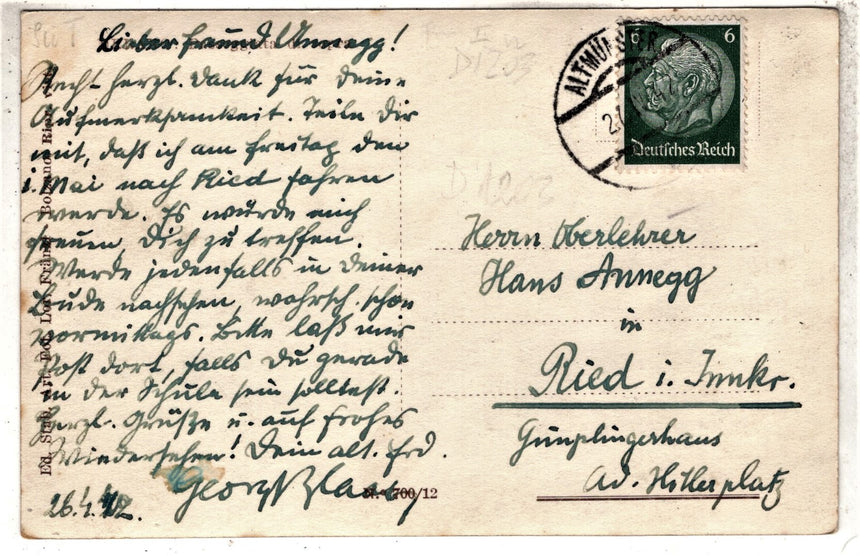 Lieber Freund Annegg!
Recht herzl. Dank für Deine
Aufmerksamkeit. Teile Dir
mit, daß ich am Freitag den
1. Mai nach Ried fahren
werde. Es würde mich
freuen, Dich zu treffen.
Werde jedenfalls in Deiner
Bude nachsehen, wahrsch. schon
vormittags. Bitte laß mir
Post dort, falls Du gerade
in der Schule sein solltest.
Herzl. Grüße u. auf frohes
Wiedersehen! Dein alt. Frd.
Georg
26.4.42.
Nr. 700/12
D 1203
D 1203
ALTMÜNSTER
6 6
Deutsches Reich
Herrn Oberlehrer
Hans Annegg
in
Ried i. Innkr.
Gumplingerhaus
Ad. Hitlerplatz